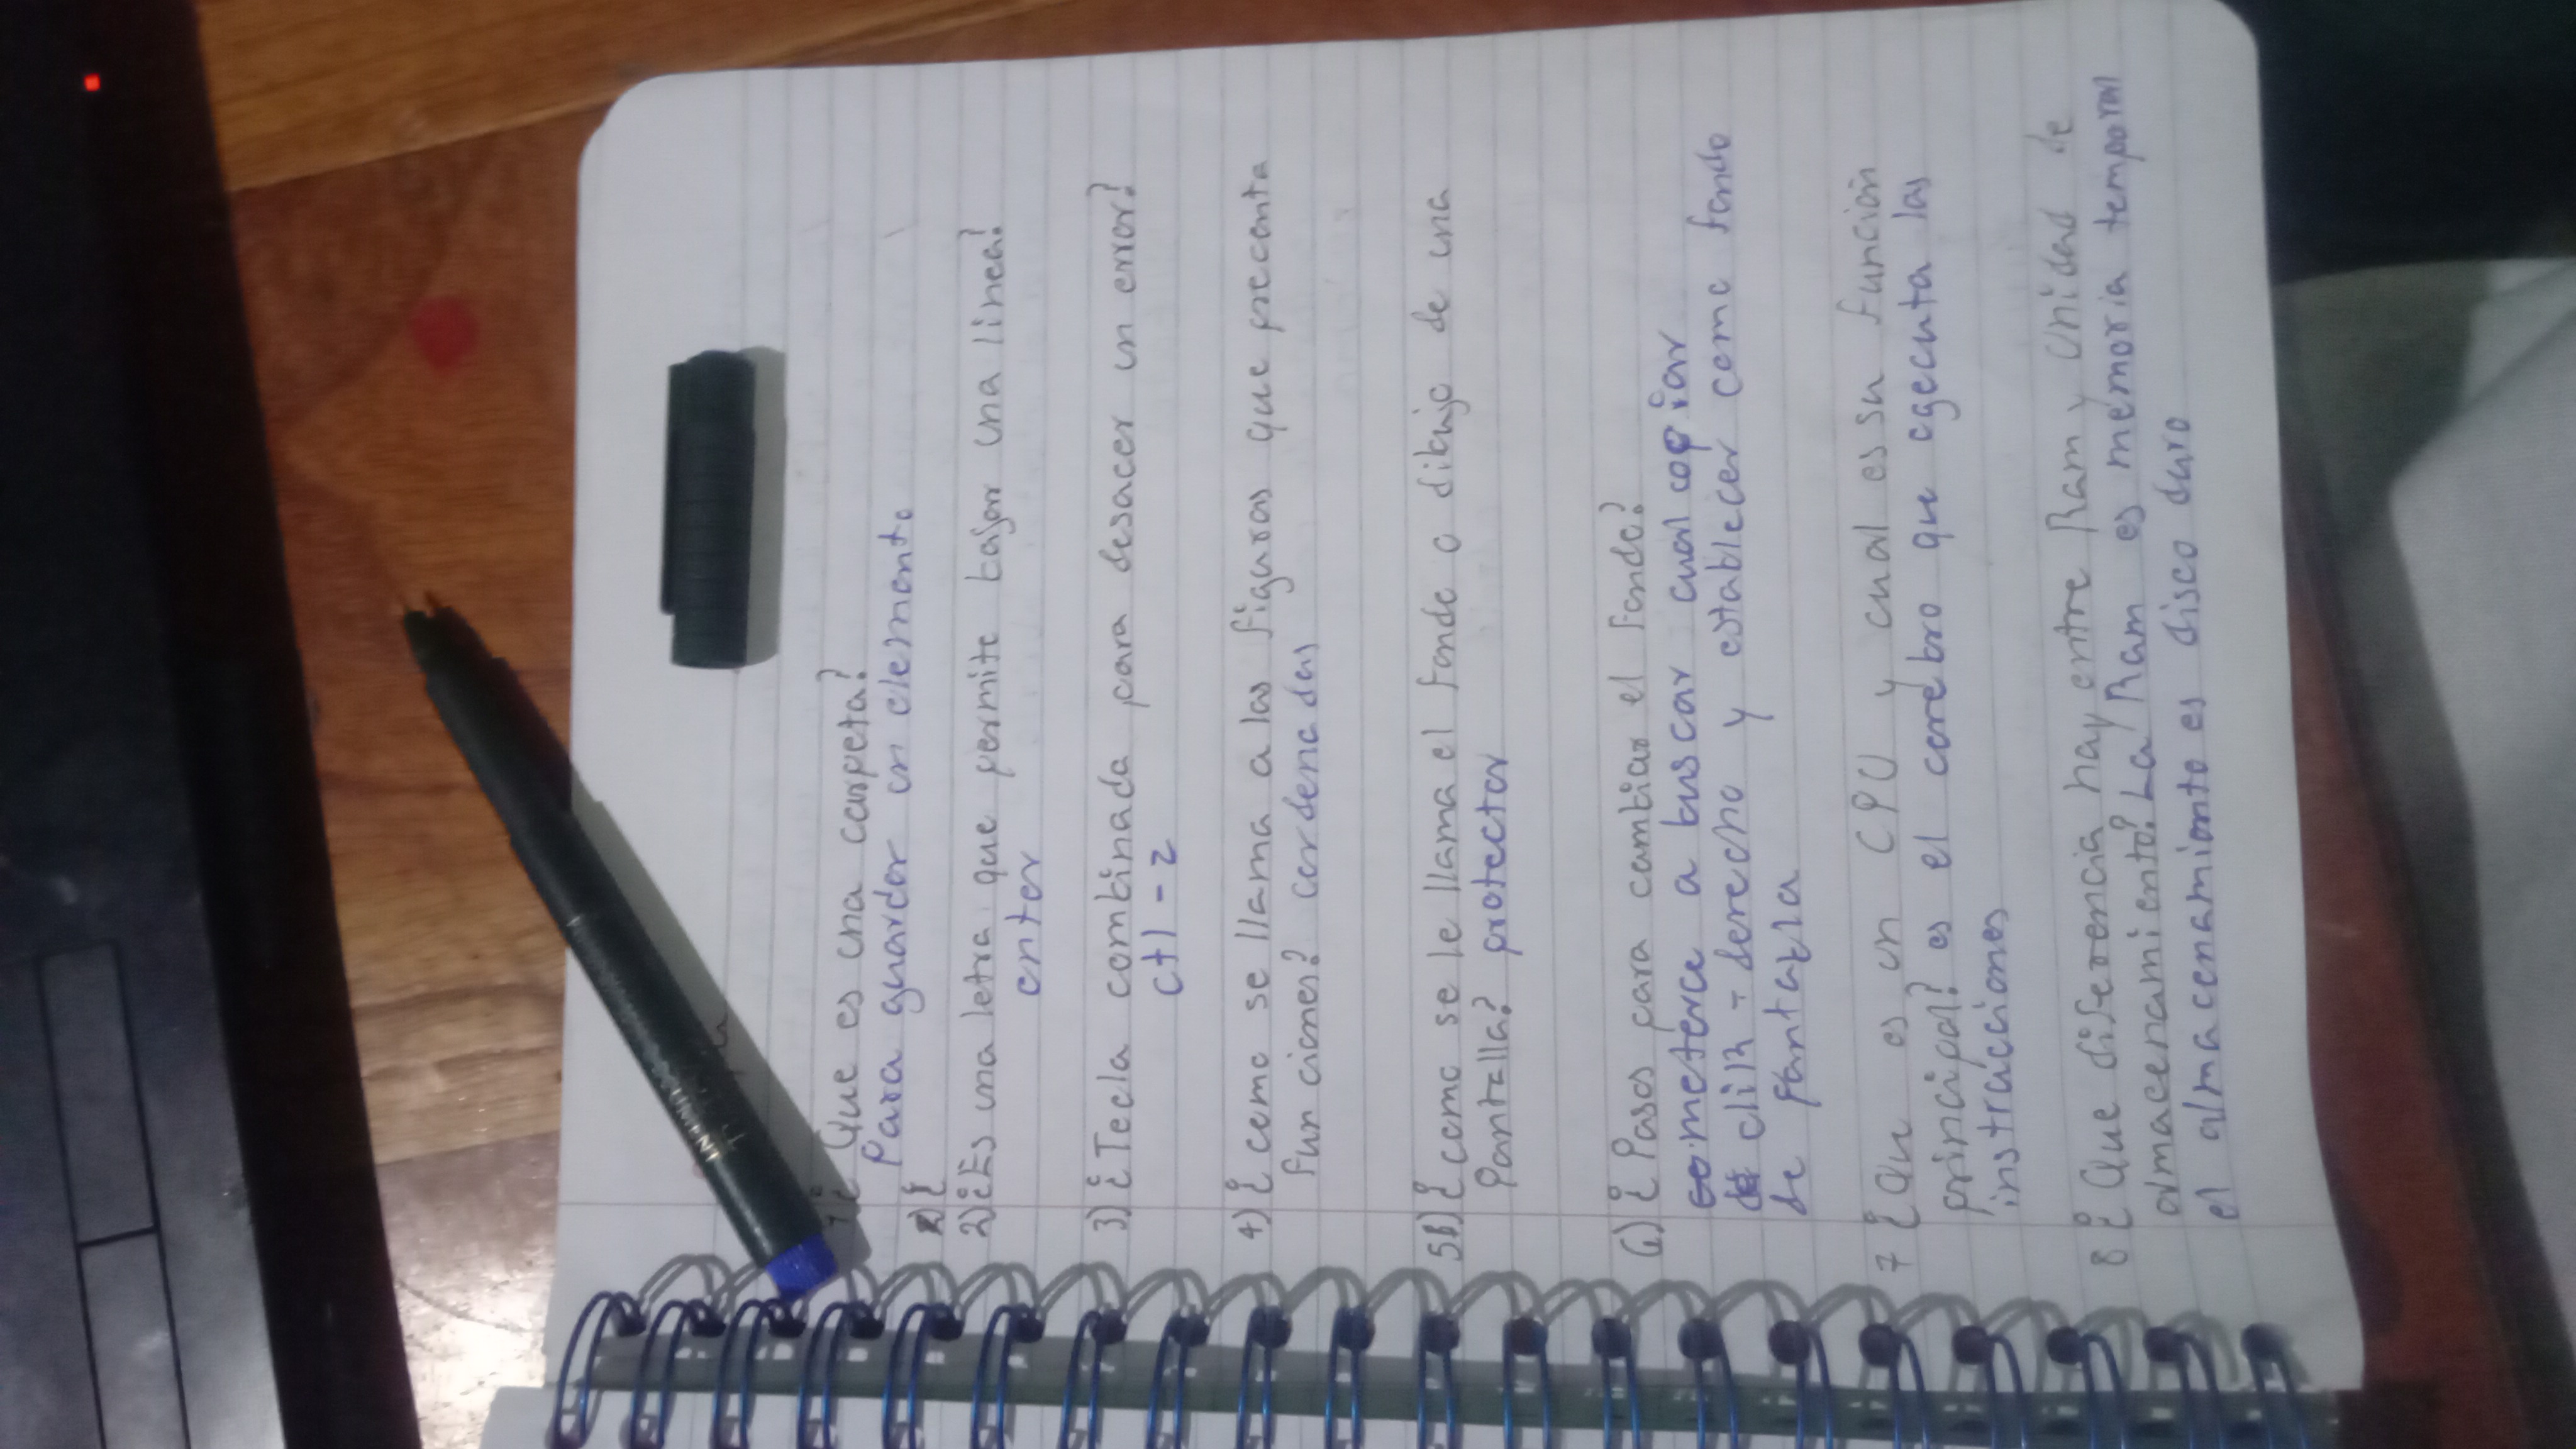 1 ¿ Que es una carpeta?
Para guardar un elemento
2) ¿
2) ¿Es una letra que permite bajar una linea?
enter
3) ¿ Tecla combinada para desacer un error?
ctl - z
4) ¿ como se llama a las figuras que precenta
funciones?
5) ¿ como se le llama el fondo o dibujo de una
Pantalla? protector
6) ¿ Pasos para cambiar el fondo?
meterce a buscar cual copiar
clik - derecho y establecer como fondo
de pantalla
7 ¿ Qu es un CPU y cual es su función
principal? es el cerebro que egecuta las
instrucciones
8 ¿ Que diferencia hay entre Ram y Unidad de
almacenamiento? La Ram es memoria temporal
el almacenamiento es disco duro